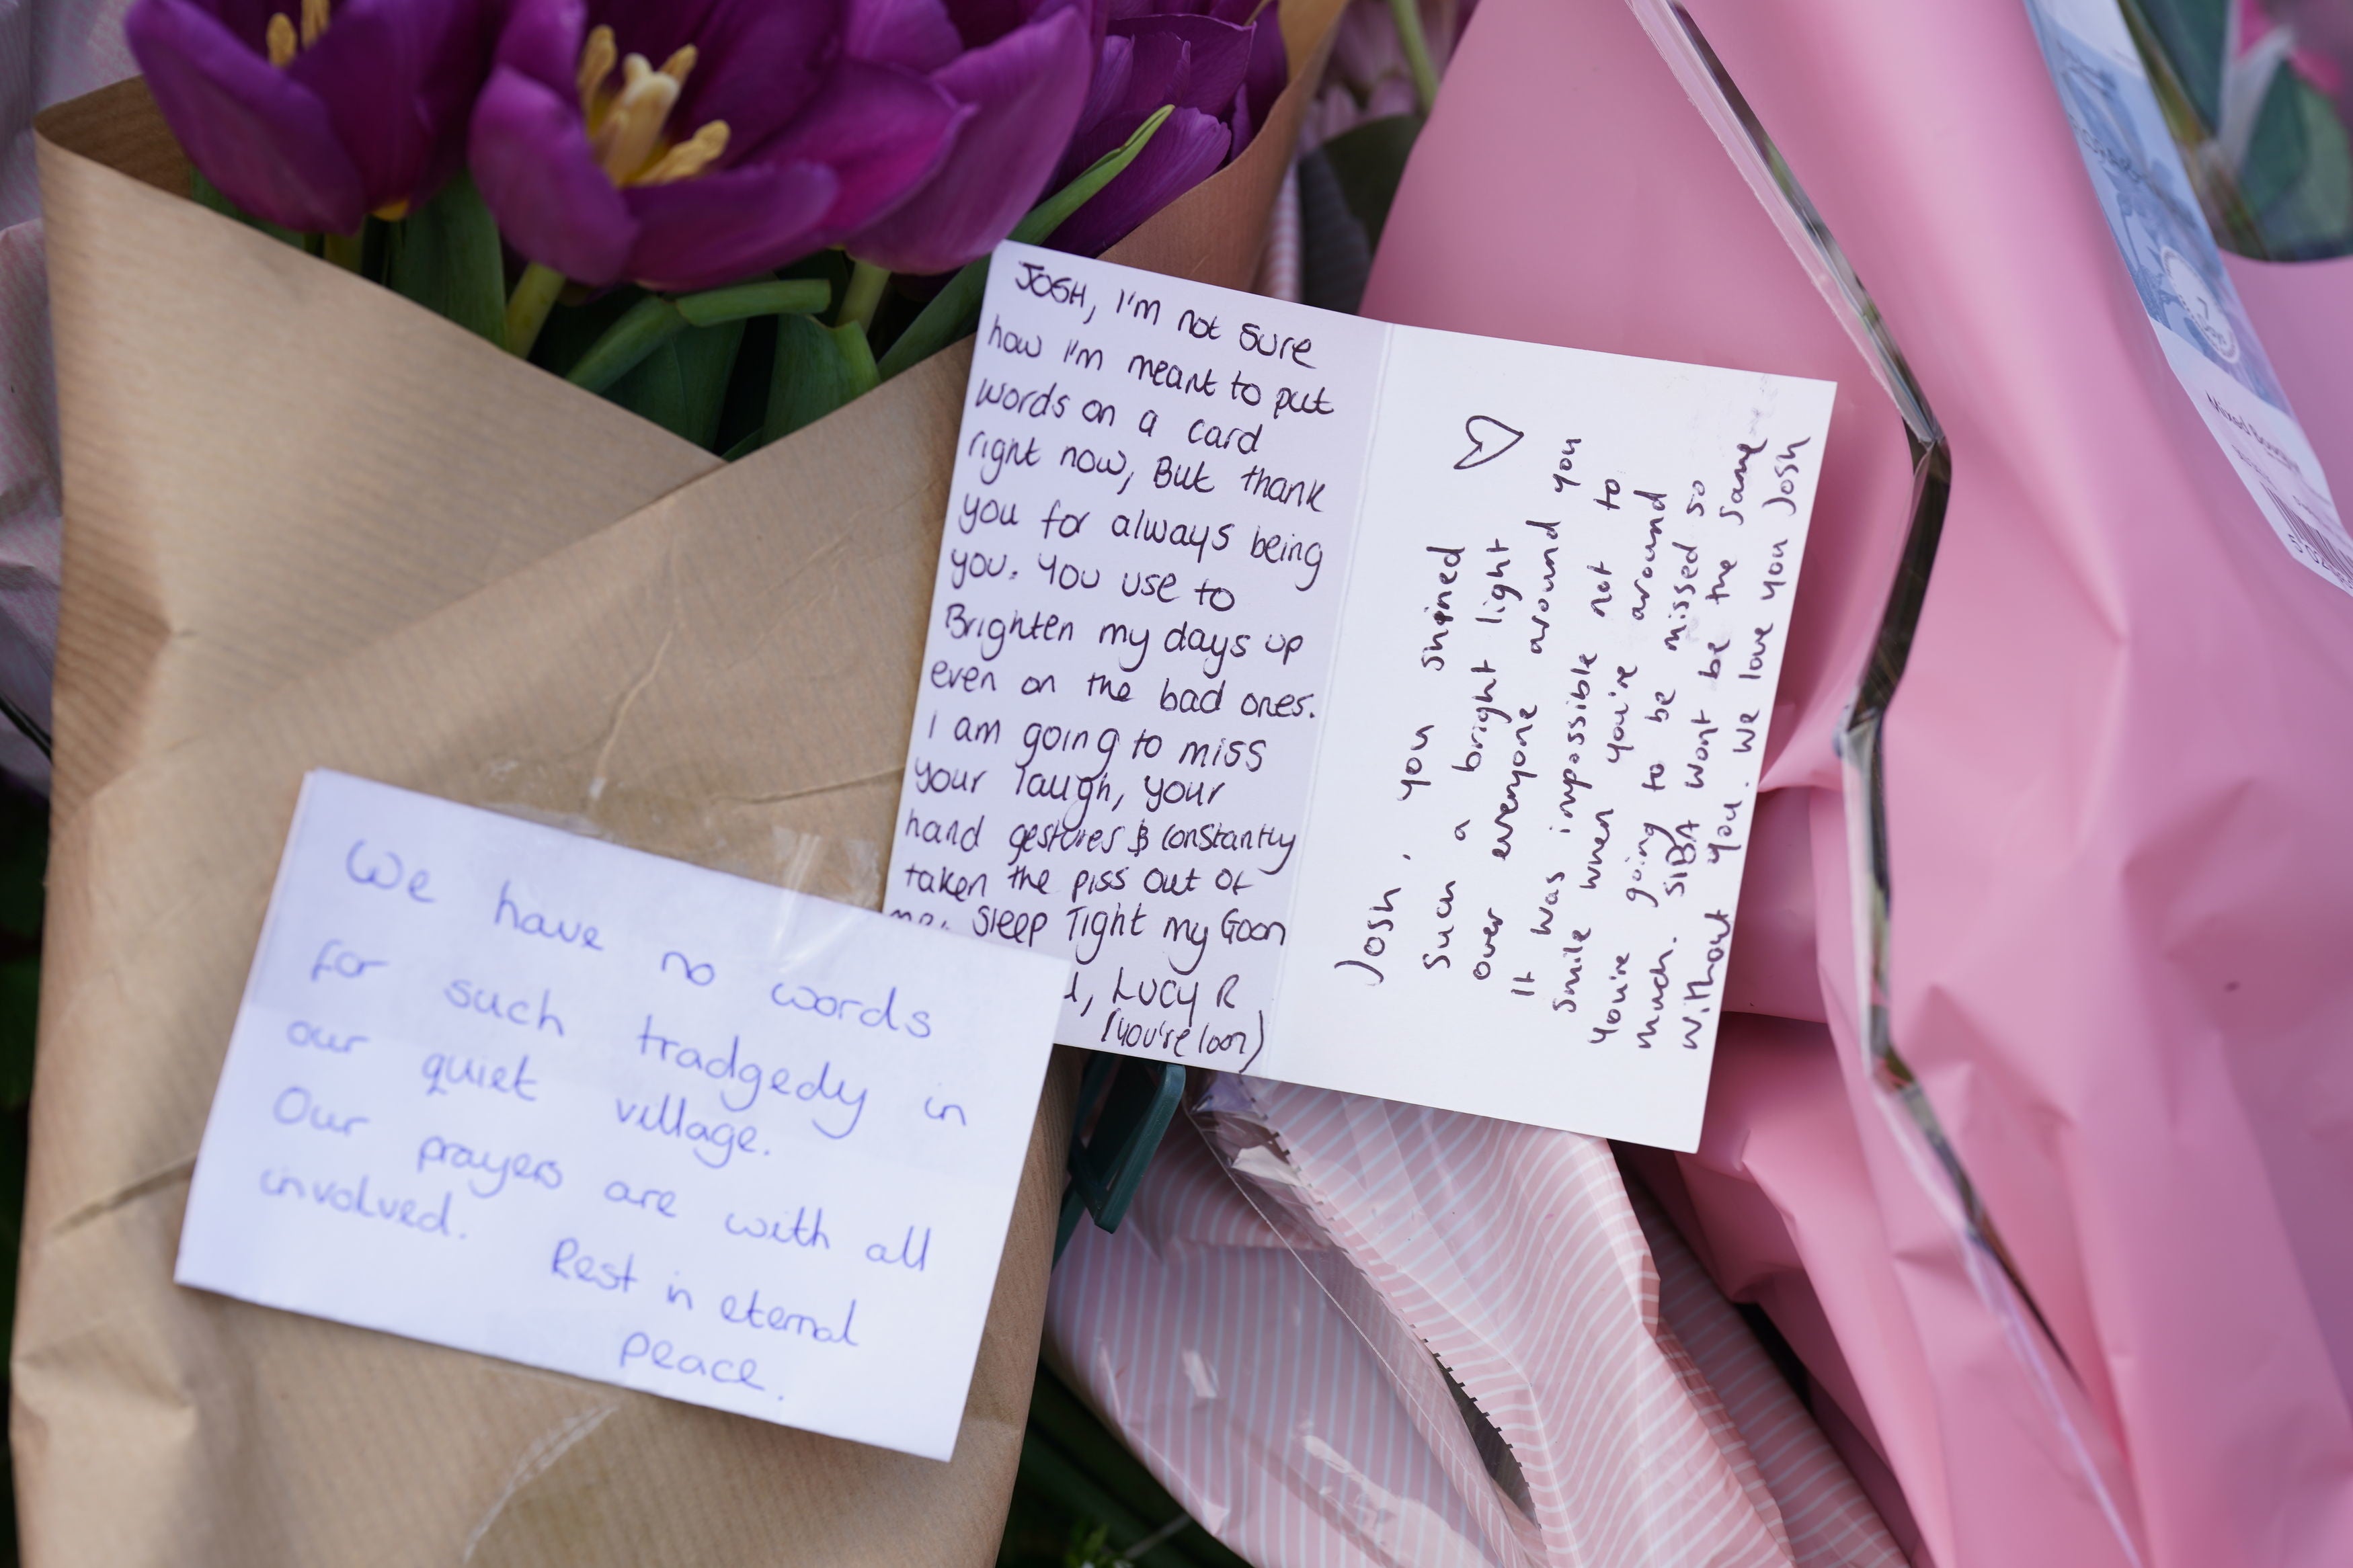 JOSH, I'm not sure
how I'm meant to put
words on a card
right now, But thank
you for always being
you. You use to
Brighten my days up
even on the bad ones.
I am going to miss
your laugh, your
hand gestures & constantly
taken the piss out of
me. Sleep Tight my Goon
Lucy R
(you're loon)
Josh, you shined
such a bright light
over everyone around you
It was impossible not to
smile when you're around
you're going to be missed so
much. SIBA wont be the same
without you. We love you Josh
We have no words
for such tradgedy in
our quiet village.
Our prayers are with all
involved.
Rest in eternal
peace.
7